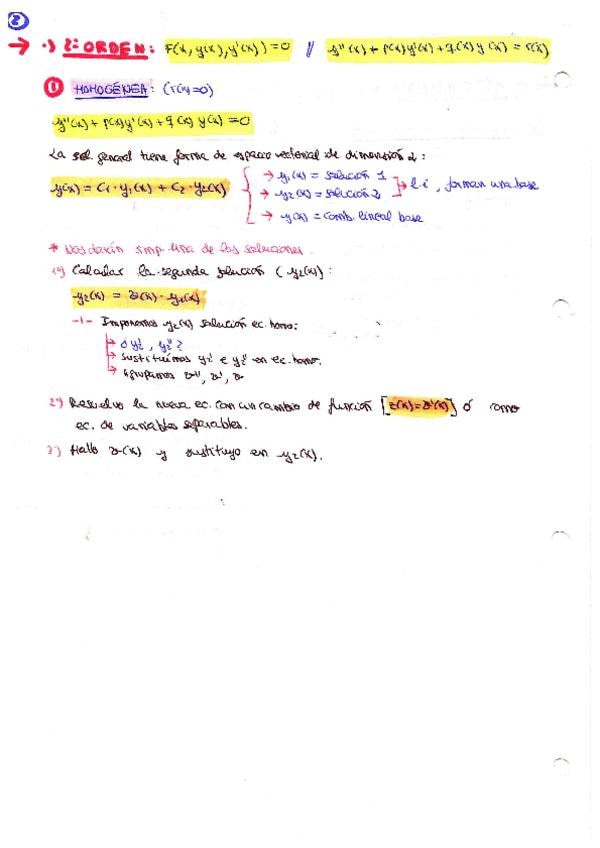 2
→ ·) 2º ORDEN: F(x, y(x), y'(x)) = 0 // y''(x) + p(x)y'(x) + q(x) y(x) = r(x)
① HOMOGÉNEA: (r(x)=0)
y''(x) + p(x)y'(x) + q(x) y(x) = 0
La sol. general tiene forma de espacio vectorial de dimensión 2:
y(x) = C1·y1(x) + C2·y2(x)
→ y1(x) = solución 1
→ y2(x) = solución 2
→ l.i, forman una base
→ y(x) = comb. lineal base
* Nos darán smp. una de las soluciones.
1º) Calcular la segunda solución (y2(x)):
y2(x) = v(x)·y1(x)
-1- Imponemos y2(x) solución ec. homo:
→ ¿y2', y2''?
→ Sustituimos y2' e y2'' en ec. homo.
→ Agrupamos v'', v', v
2º) Resuelvo la nueva ec. con un cambio de función [z(x)=v'(x)] ó como
ec. de variables separables.
3º) Hallo v(x) y sustituyo en y2(x).